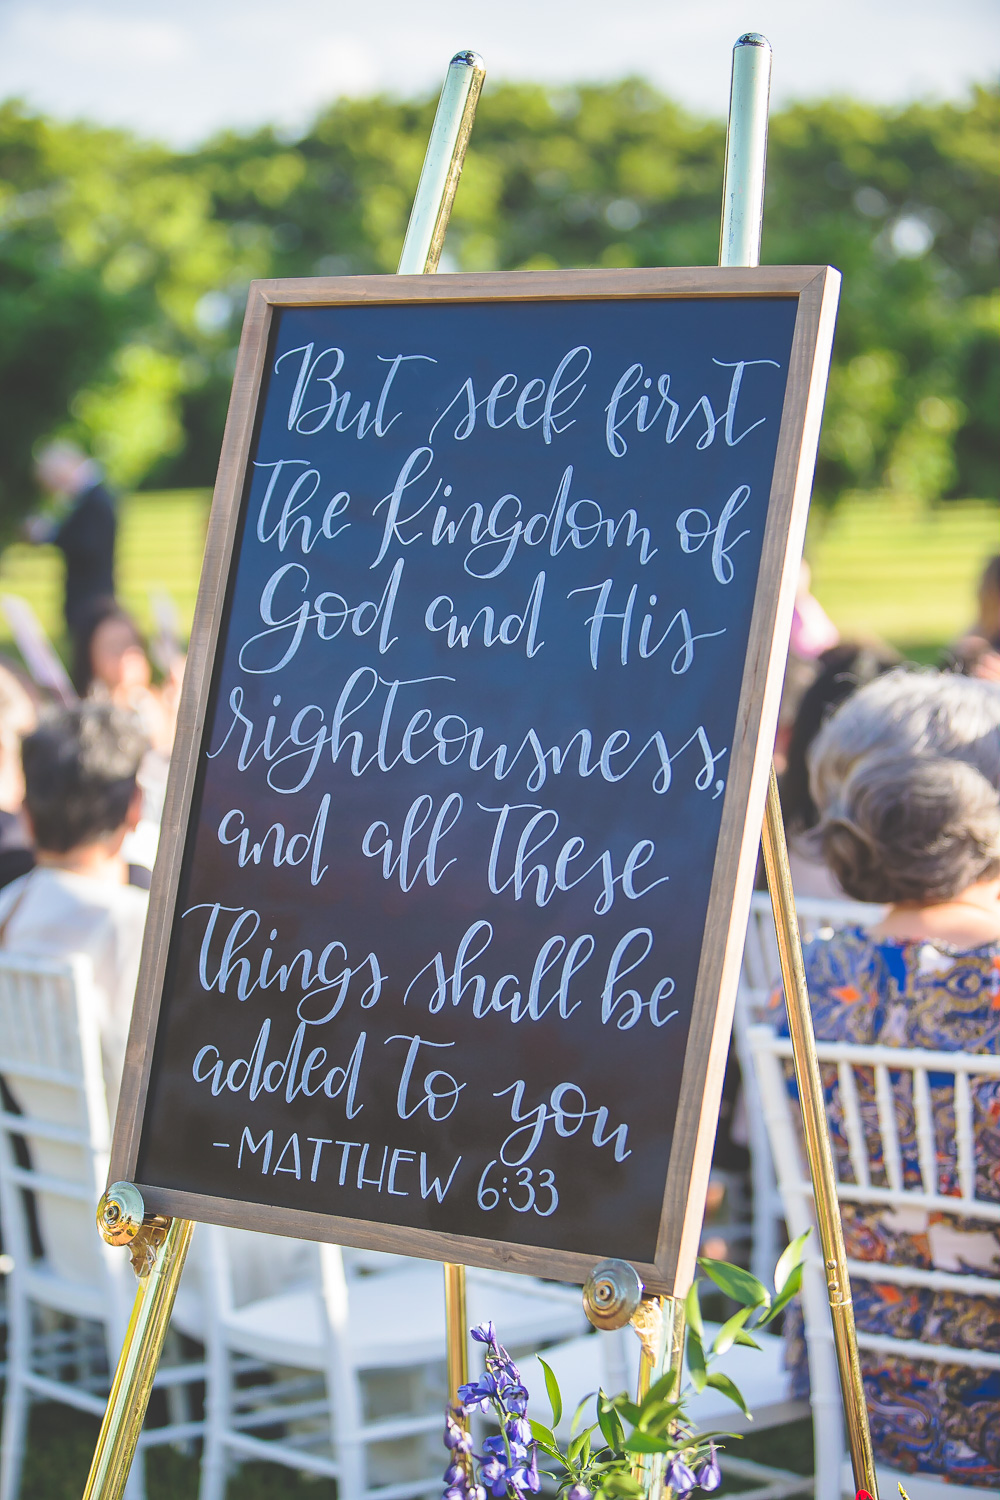 But seek first
the kingdom of
God and His
righteousness,
and all these
things shall be
added to you
-MATTHEW 6:33